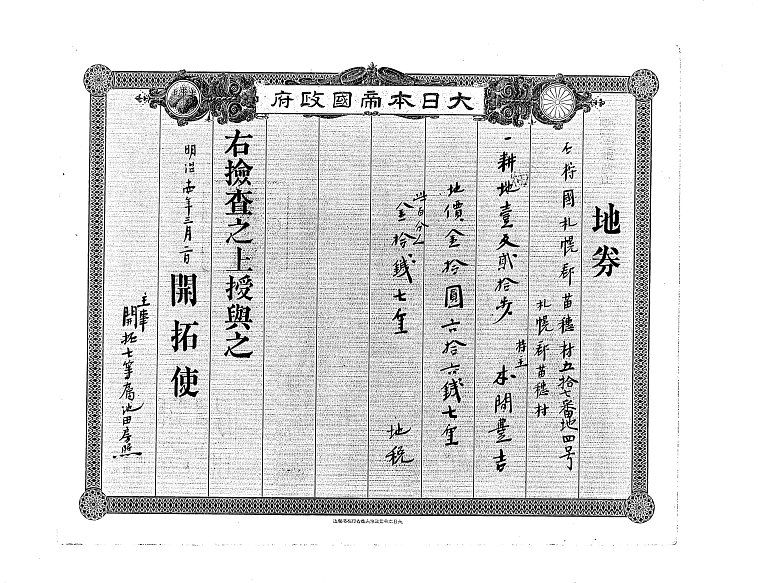 大日本帝國政府
地券
石狩國札幌郡苗穗村五拾七番地四号
札幌郡苗穗村
一耕地壹反貳拾歩
持主 本間豊吉
地價金拾圓六拾六銭七厘
百分
金拾銭七厘 地税
右撿査之上授與之
明治 年三月 日 開拓使
主事
開拓七等属池田